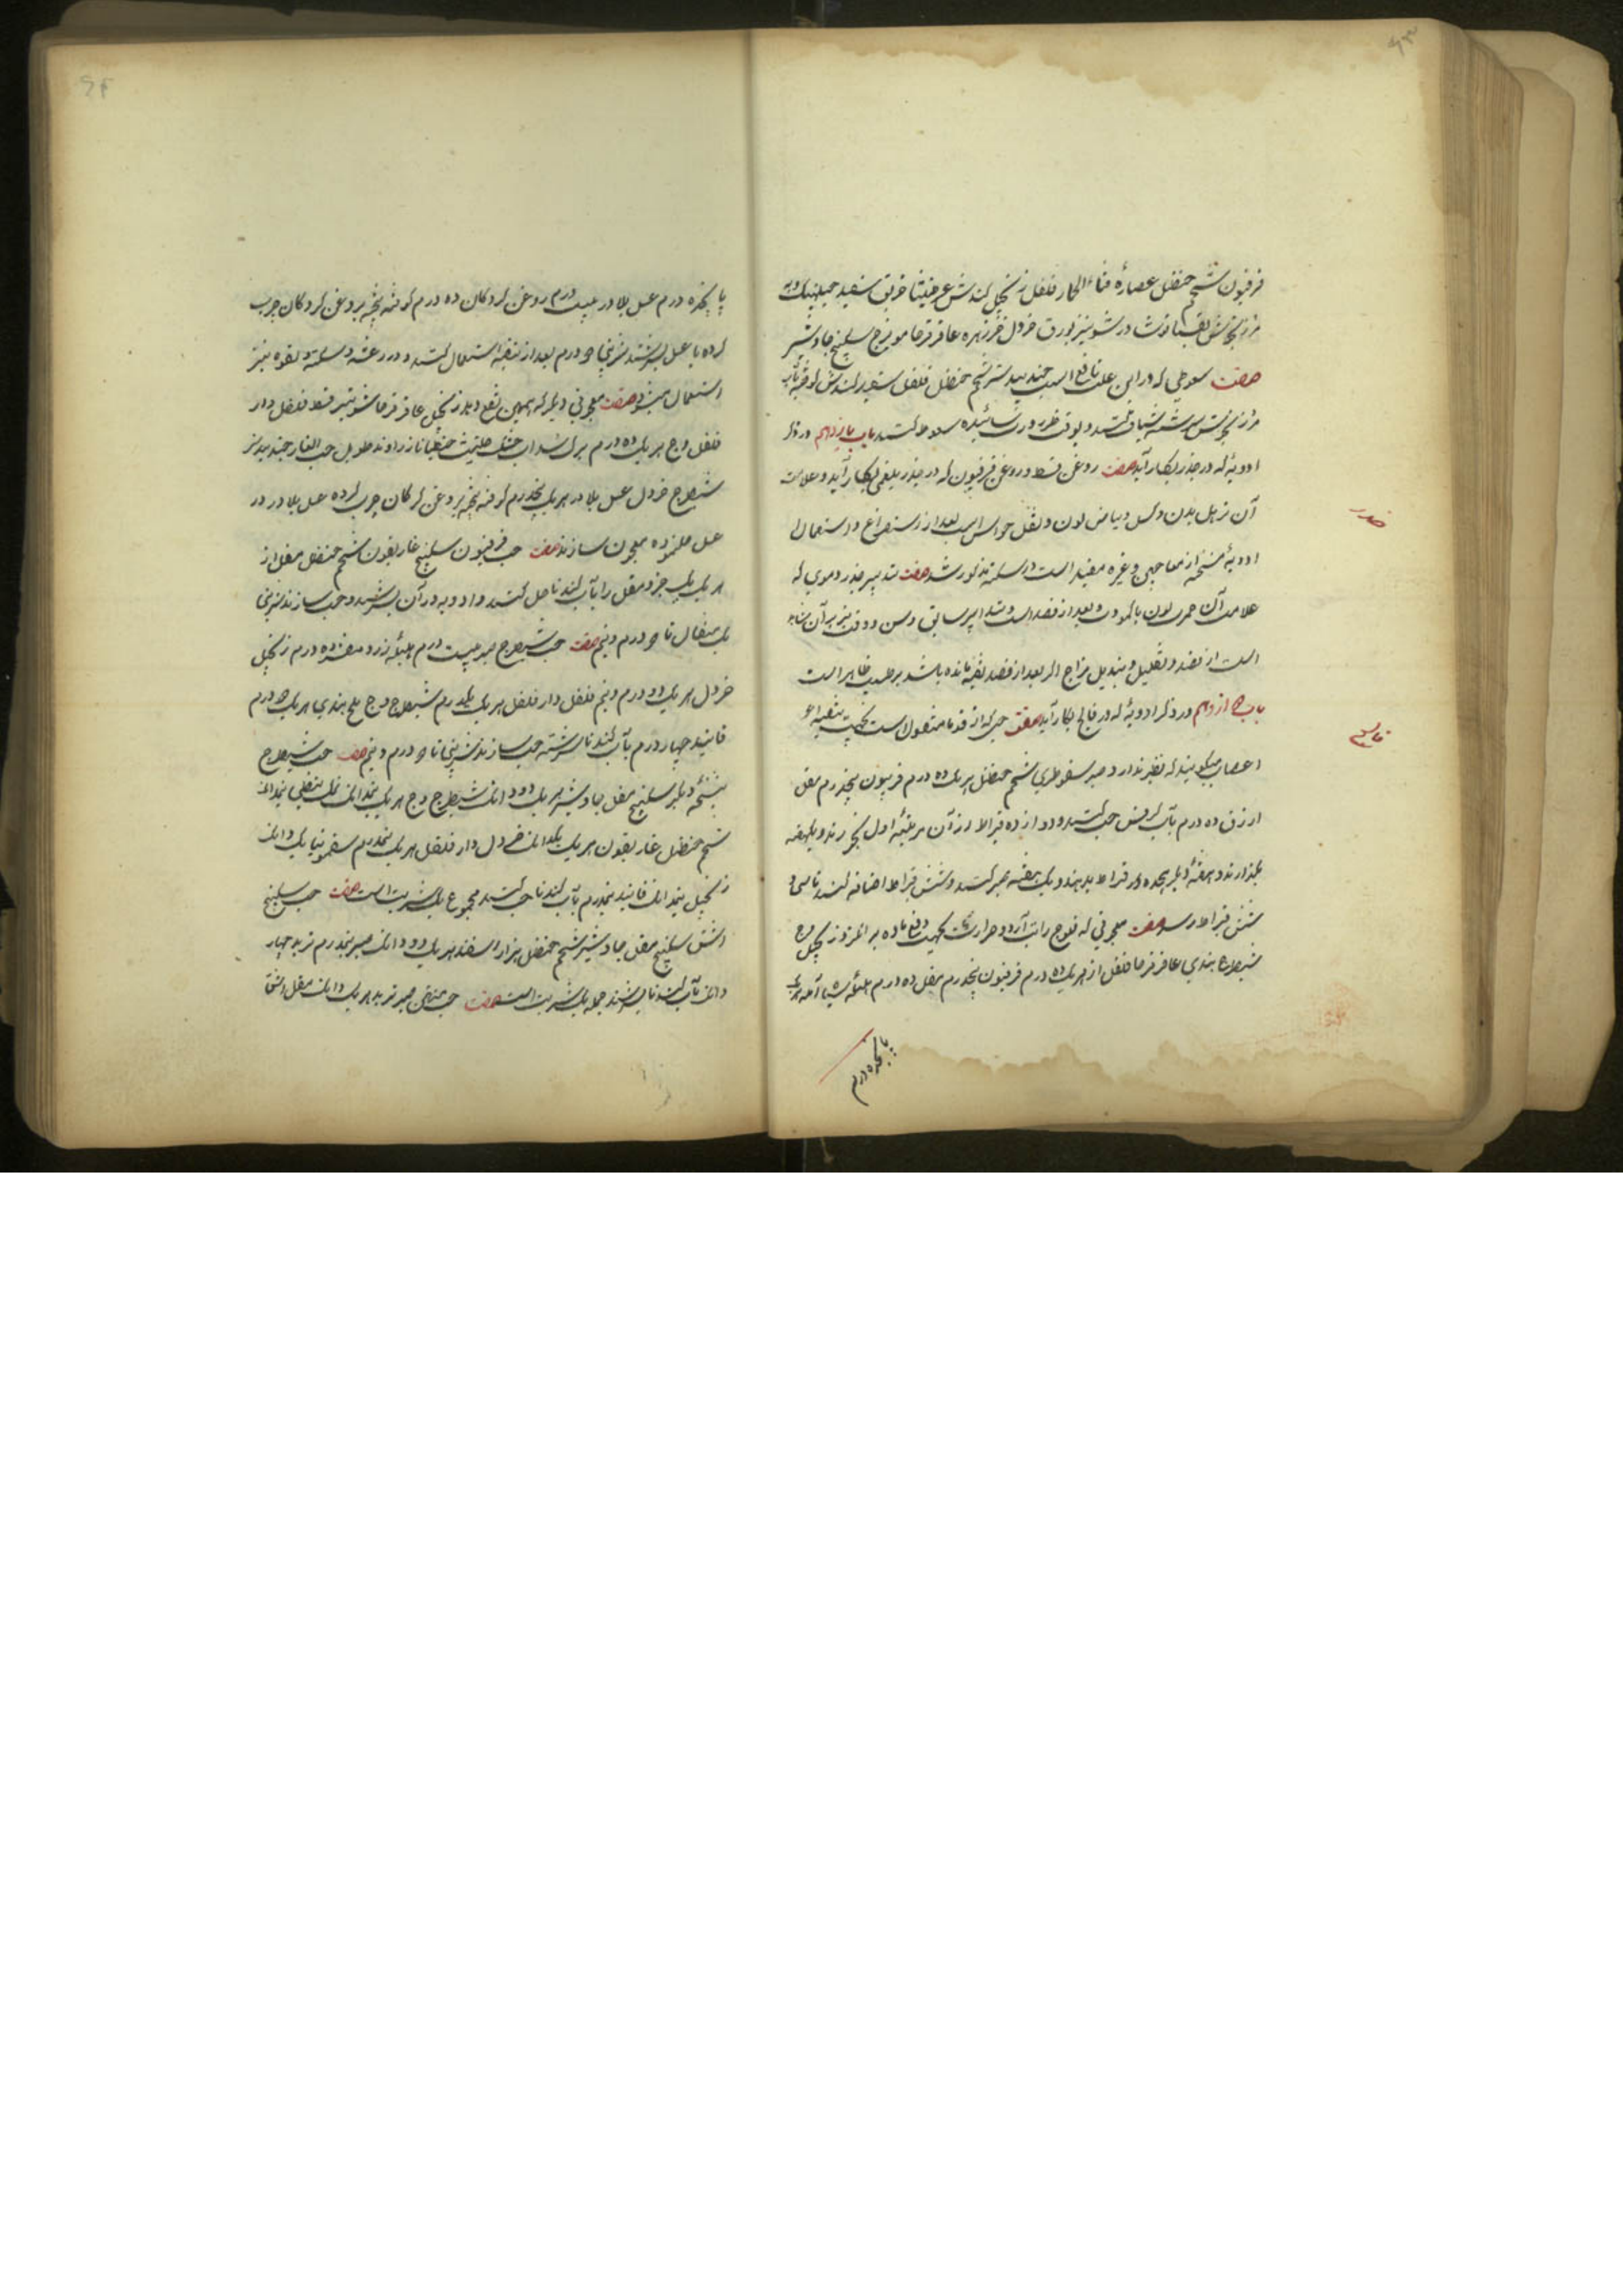 فرفیون شحم حنظل عصارهٔ قثاء الحمار فلفل زنجبیل کندش عرطنیثا خربق سفید
مرزنجوش نوشادر شونیز بورق خردل خرزهره عاقرقرحا مویزج سکبینج جاوشیر
صفت سعوطی که در این علت نافع است جندبیدستر شحم حنظل فلفل سفید کندش کوفته بآب
مرزنجوش سرشته شیاف کنند و بوقت ضرورت سائیده سعوط کنند باب یازدهم در ذکر
ادویهٔ که در خدر بکار آید صفت روغن قسط و روغن فرفیون که در خدر بلغمی بکار آید و علامت
آن ترهل بدن و کسل و بیاض لون و ثقل حواس است بعد از استفراغ و استعمال
ادویهٔ مسخنه از معاجین و غیره مفید است در سکته مذکور شد صفت تدبیر خدر دموی که
علامت آن حمرت لون یا کمودت و بعد از فصد است و تدابیر سابق و سن و وقت نیز بر آن شاهد
است از فصد و تقلیل و تبدیل مزاج اگر بعد از فصد بقیه مانده باشد بر طبیب ظاهر است
باب دوازدهم در ذکر ادویهٔ که در فالج بکار آید صفت حبی که از قدما منقول است بجهت تنقیه
اعصاب میگویند که نظیر ندارد صبر سقوطری شحم حنظل هر یک ده درم فرفیون پنجدرم مقل
ازرق ده درم بآب کرفس حب کنند و دوازده قیراط از آن مرتبهٔ اول بخورند و یکهفته
بگذارند و هفتهٔ دیگر هجده قیراط بدهند و یک هفته صبر کنند و شش قیراط اضافه کنند تا سی و
شش قیراط رسد صفت معجونی که فلوج را بآرد و حرارت بجهت دفع ماده برانگیزد زنجبیل وج
شیطرج هندی عاقرقرحا فلفل از هر یک ده درم فرفیون پنجدرم مقل ده درم هلیلهٔ سیاه آمله هر یک
پانزده درم
خدر
فالج
پانزده درم عسل بلادر بیست درم روغن گردکان ده درم کوفته بیخته بروغن گردکان چرب
کرده با عسل بسرشند شربتی دو درم بعد از تنقیه استعمال کنند و در رعشه و سکته و لقوه نیز
استعمال میشود صفت معجونی دیگر که همین نفع دهد زنجبیل عاقرقرحا شونیز قسط فلفل دار
فلفل وج هر یک ده درم برگ سداب خشک حلتیت جنطیانا زراوند طویل حب الغار جندبیدستر
شیطرج خردل عسل بلادر هر یک پنجدرم کوفته بیخته بروغن گردکان چرب کرده عسل بلادر در
عسل حل نموده معجون سازند صفت حب فرفیون سکبینج غاریقون شحم حنظل مقل از
هر یک یک جزو مقل را بآب گندنا حل کنند و ادویه در آن بسرشند و حب سازند شربتی
یک مثقال تا دو درم و نیم صفت حب شیطرج صبر بیست درم هلیلهٔ زرد هفده درم زنجبیل
خردل هر یک دو درم و نیم فلفل دار فلفل هر یک یکدرم شیطرج وج ملح هندی هر یک دو درم
فانید چهار درم بآب گندنا سرشته حب سازند شربتی تا دو درم و نیم صفت حب شیطرج
بنسخهٔ دیگر سکبینج مقل جاوشیر هر یک دو دانگ شیطرج وج هر یک نیمدانگ نمک نفطی نیمدانگ
شحم حنظل غاریقون هر یک یکدانگ خردل دار فلفل هر یک نیمدرم سقمونیا یک دانگ
زنجبیل نیمدانگ فانید نیمدرم بآب گندنا حب کنند مجموع یک شربت است صفت حب سکبینج
اشق سکبینج مقل جاوشیر شحم حنظل هزار اسفند هر یک دو دانگ صبر نیمدرم تربد چهار
دانگ بآب گندنا بسرشند جمله یک شربت است صفت حب منتن صبر تربد هر یک دانگ مقل اشق